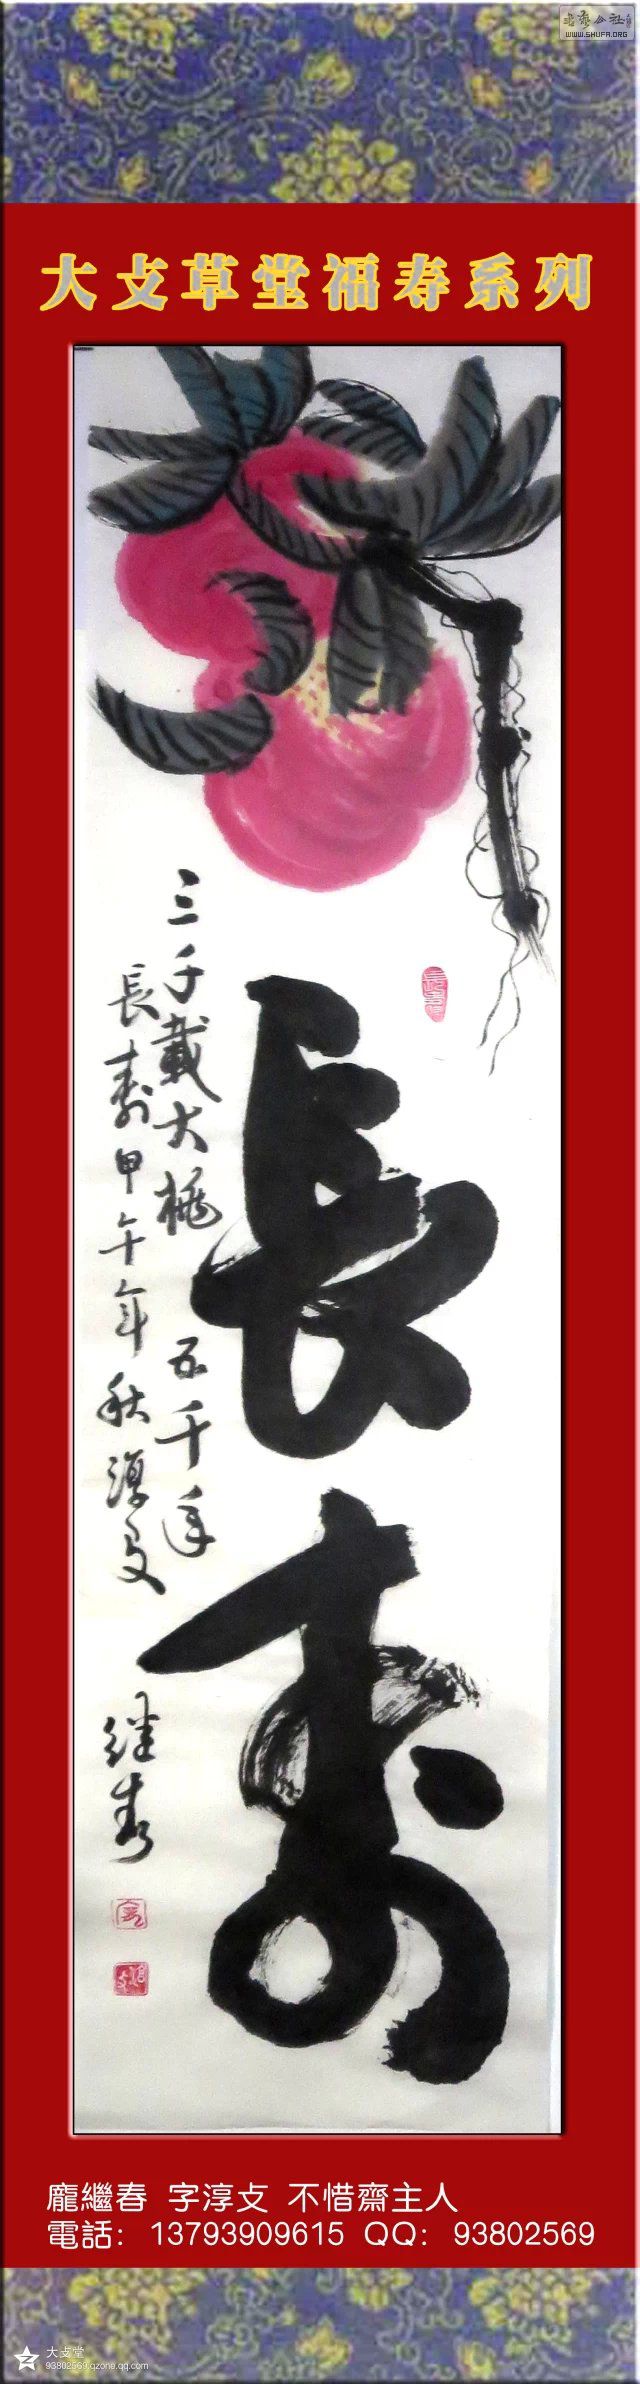 书法公社
WWW.SHUFA.ORG
大攴草堂福寿系列
長壽
三千載大桃 五千年
長壽甲午年秋淳攴
继春
龐繼春 字淳攴 不惜齋主人
電話：13793909615 QQ：93802569
大攴堂
93802569.qzone.qq.com